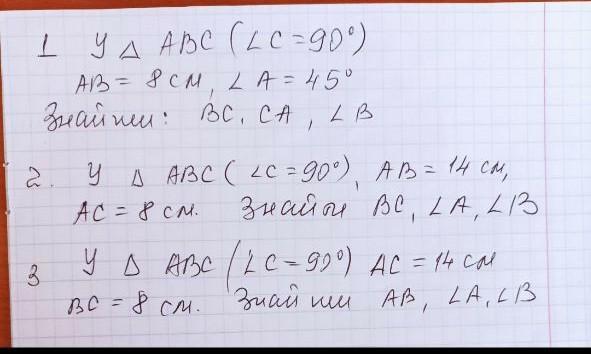 1 У △ ABC (∠C=90°)
AB = 8 см, ∠A = 45°
Знайти: BC, CA, ∠B
2. У △ ABC (∠C=90°), AB = 14 см,
AC = 8 см. Знайти BC, ∠A, ∠B
3 У △ ABC (∠C=90°) AC = 14 см
BC = 8 см. Знайти AB, ∠A, ∠B